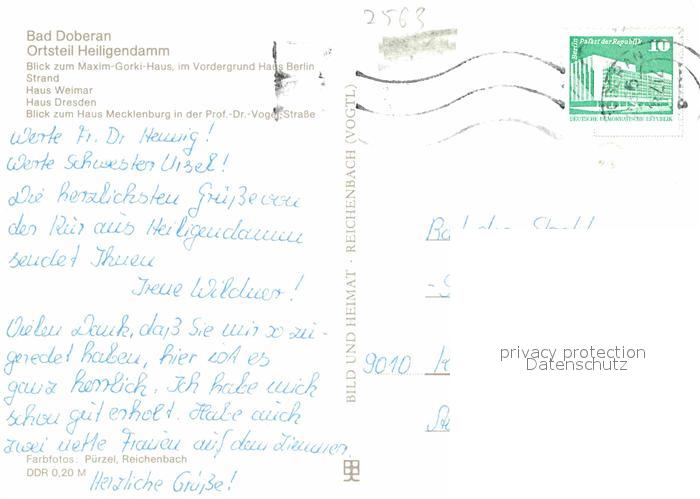 2563
Bad Doberan
Ortsteil Heiligendamm
Blick zum Maxim-Gorki-Haus, im Vordergrund Haus Berlin
Strand
Haus Weimar
Haus Dresden
Blick zum Haus Mecklenburg in der Prof.-Dr.-Vogel-Straße
Werte Fr. Dr. Hennig!
Werte Schwester Ursel!
Die herzlichsten Grüße von
der Kur aus Heiligendamm
sendet Ihnen
Irene Wildner!
Vielen Dank, daß Sie mir so zu-
geredet haben, hier ist es
ganz herrlich. Ich habe mich
schon gut erholt. Habe auch
zwei nette Frauen auf dem Zimmer.
Herzliche Grüße!
Farbfotos: Pürzel, Reichenbach
DDR 0,20 M
BILD UND HEIMAT · REICHENBACH (VOGTL)
Berlin Palast der Republik
10
DEUTSCHE DEMOKRATISCHE REPUBLIK
9010
privacy protection
Datenschutz